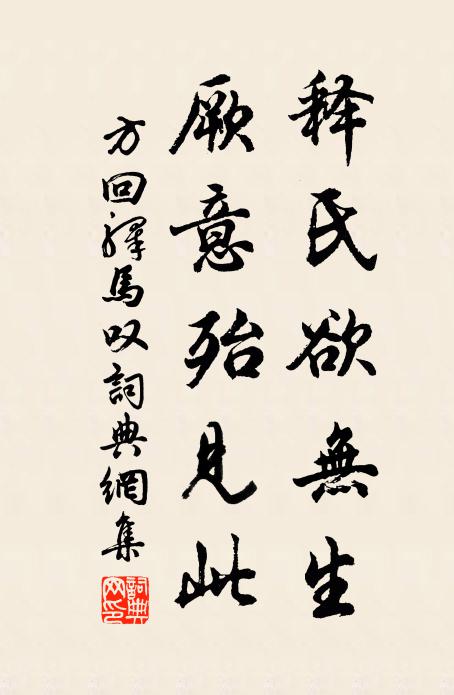 释氏欲無生
厥意殆見此
方回驛馬叹詞典網集
詞典网印